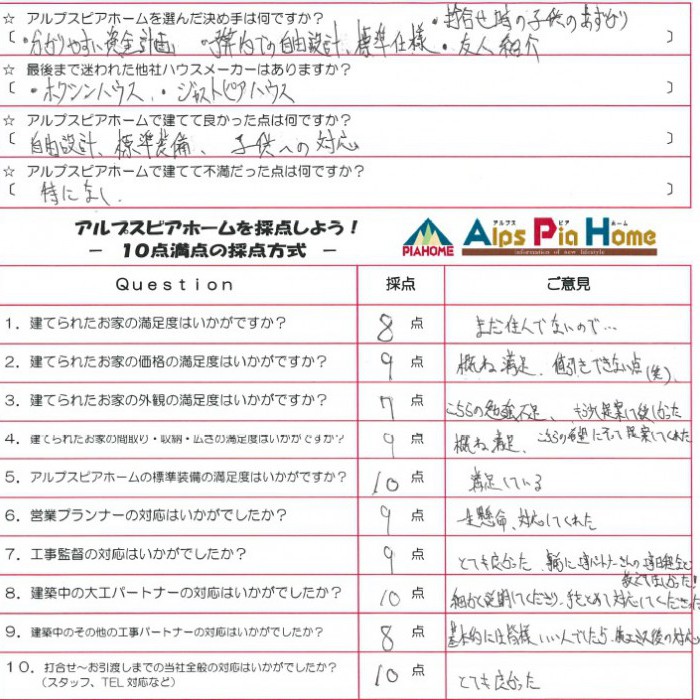 ☆ アルプスピアホームを選んだ決め手は何ですか？ ・打合せ時の子供のあずかり
〔 ・分かりやすい資金計画 ・予算内での自由設計、標準仕様 ・友人紹介 〕
☆ 最後まで迷われた他社ハウスメーカーはありますか？
〔 ・ホクシンハウス、・ジャストピアハウス 〕
☆ アルプスピアホームで建てて良かった点は何ですか？
〔 自由設計、標準装備、子供への対応 〕
☆ アルプスピアホームで建てて不満だった点は何ですか？
〔 特になし 〕
アルプスピアホームを採点しよう！
− 10点満点の採点方式 −
PIAHOME
アルプス ピア ホーム
Alps Pia Home
information of new lifestyle
Question 採点 ご意見
1．建てられたお家の満足度はいかがですか？ 8 点 まだ住んでないので…
2．建てられたお家の価格の満足度はいかがですか？ 9 点 概ね満足、値引きできない点(笑)、
3．建てられたお家の外観の満足度はいかがですか？ 7 点 こちらの勉強不足、もう少し提案して欲しかった
4．建てられたお家の間取り・収納・広さの満足度はいかがですか？ 9 点 概ね満足、こちらの希望にそって提案してくれた
5．アルプスピアホームの標準装備の満足度はいかがですか？ 10 点 満足している
6．営業プランナーの対応はいかがでしたか？ 9 点 一生懸命、対応してくれた
7．工事監督の対応はいかがでしたか？ 9 点 とても良かった
教えてほしかった！
8．建築中の大工パートナーの対応はいかがでしたか？ 10 点 細かく説明してくださり、手をとめて対応してくださった
9．建築中のその他の工事パートナーの対応はいかがでしたか？ 8 点 基本的には皆様いい人でした
10．打合せ〜お引渡しまでの当社全般の対応はいかがでしたか？ 10 点 とても良かった
（スタッフ、TEL対応など）